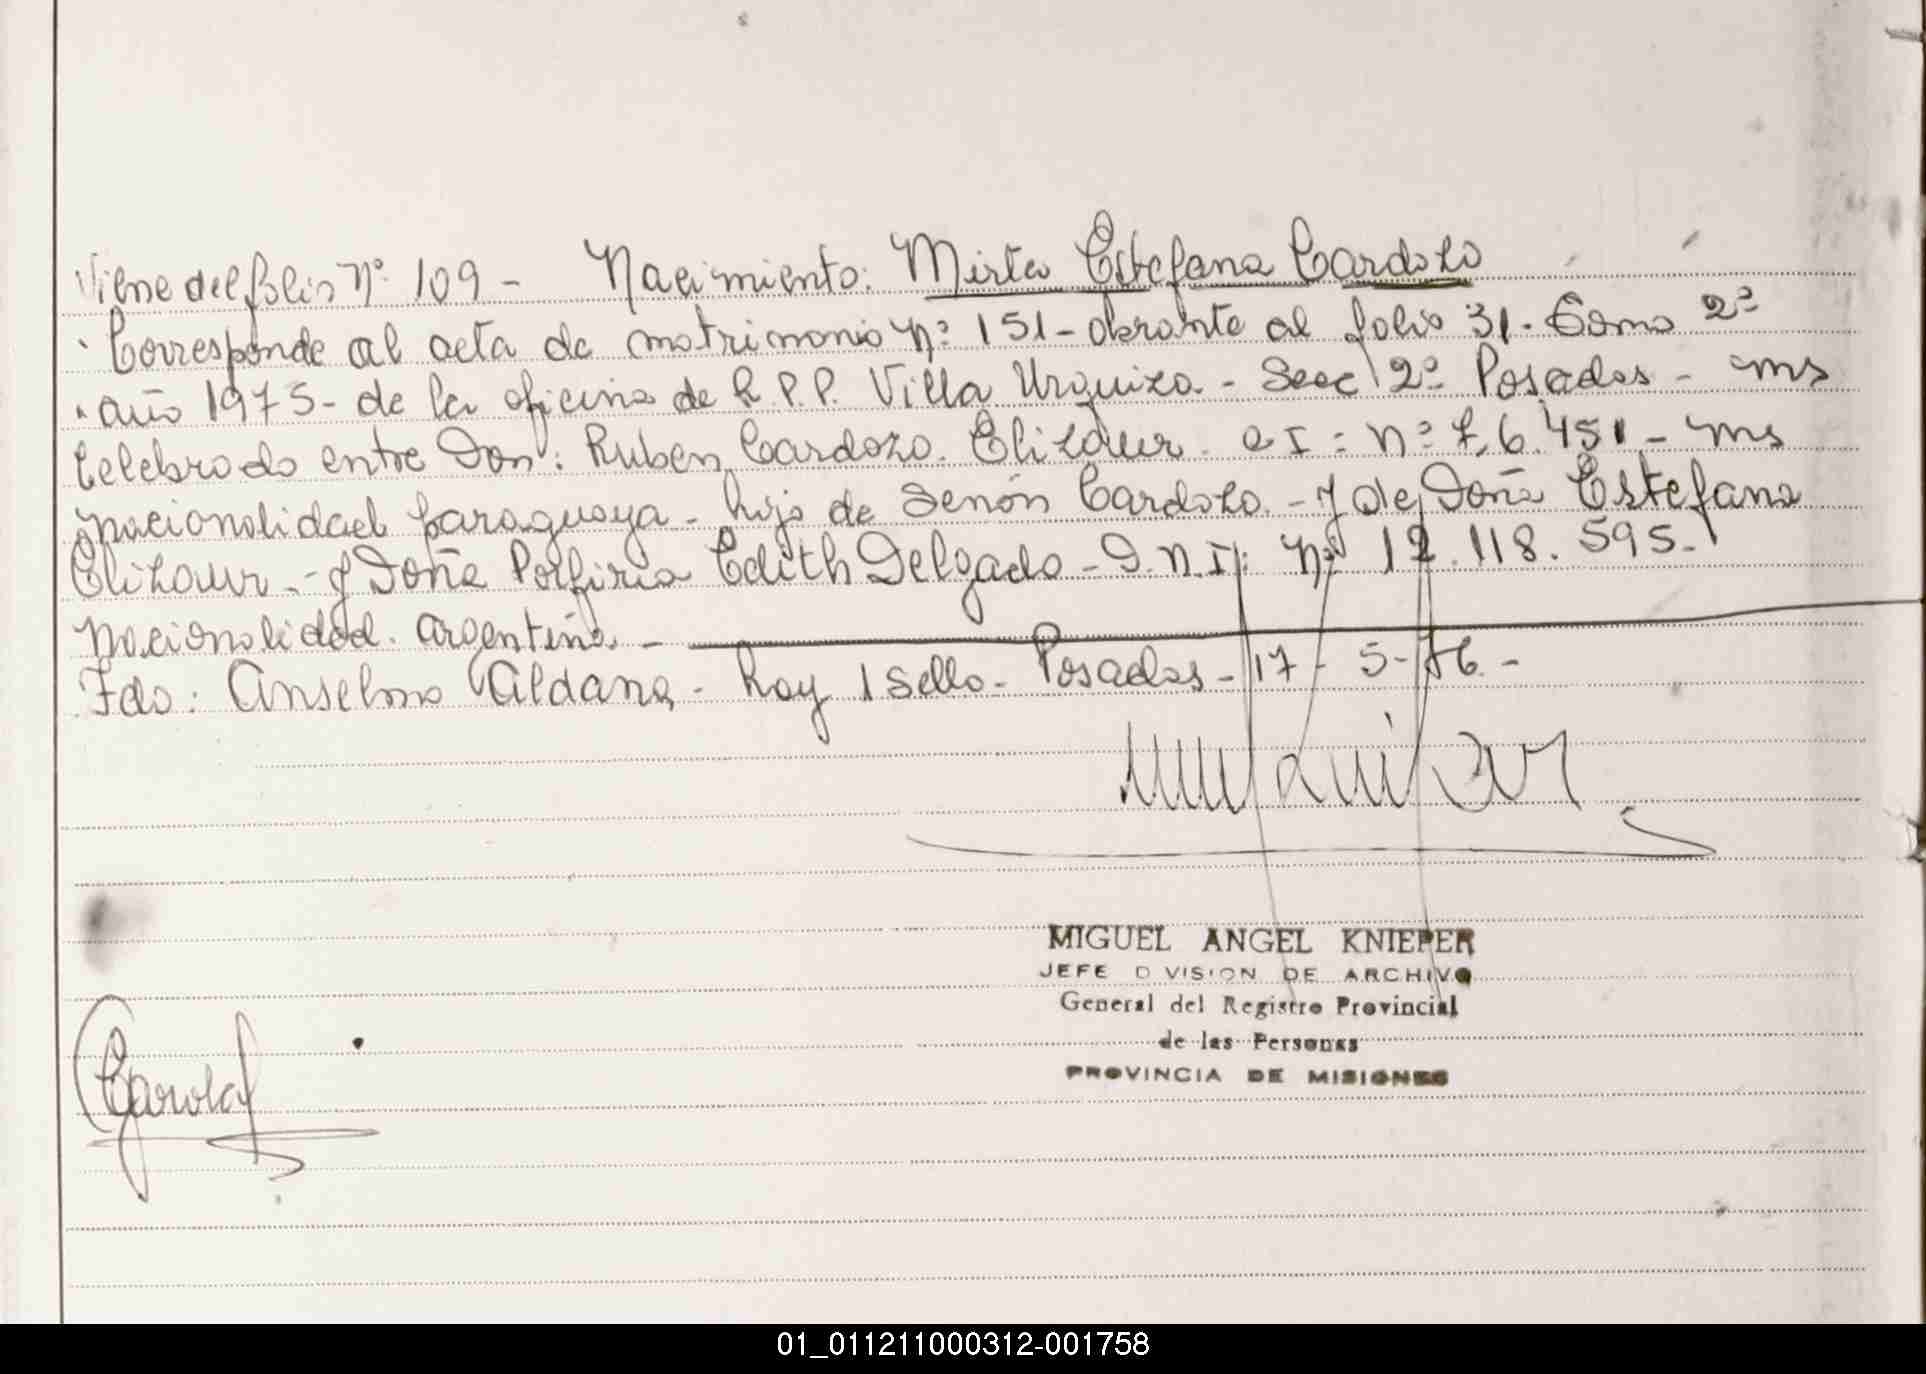 Viene del folio Nº 109 - Nacimiento: Mirta Estefana Cardozo
Corresponde al acta de matrimonio Nº 151 - obrante al folio 31. Tomo 2º
año 1975 - de la oficina de R.P.P. Villa Urquiza - Secc 2º Posadas - Ms
Celebrado entre Don: Ruben Cardozo. Elizaur. C I: Nº 76.451 - Ms
nacionalidad paraguaya - hijo de Senón Cardozo. - y de Doña Estefana
Elizaur - y Doña Porfiria Edith Delgado - D.N.I: Nº 12.118.595.
Nacionalidad. argentina -
Fdo: Anselmo Aldana - hay 1 sello - Posadas - 17 - 5 - 76 -
MIGUEL ANGEL KNIEPER
JEFE D VISION DE ARCHIVO
General del Registro Provincial
de las Personas
PROVINCIA DE MISIONES
01_011211000312-001758